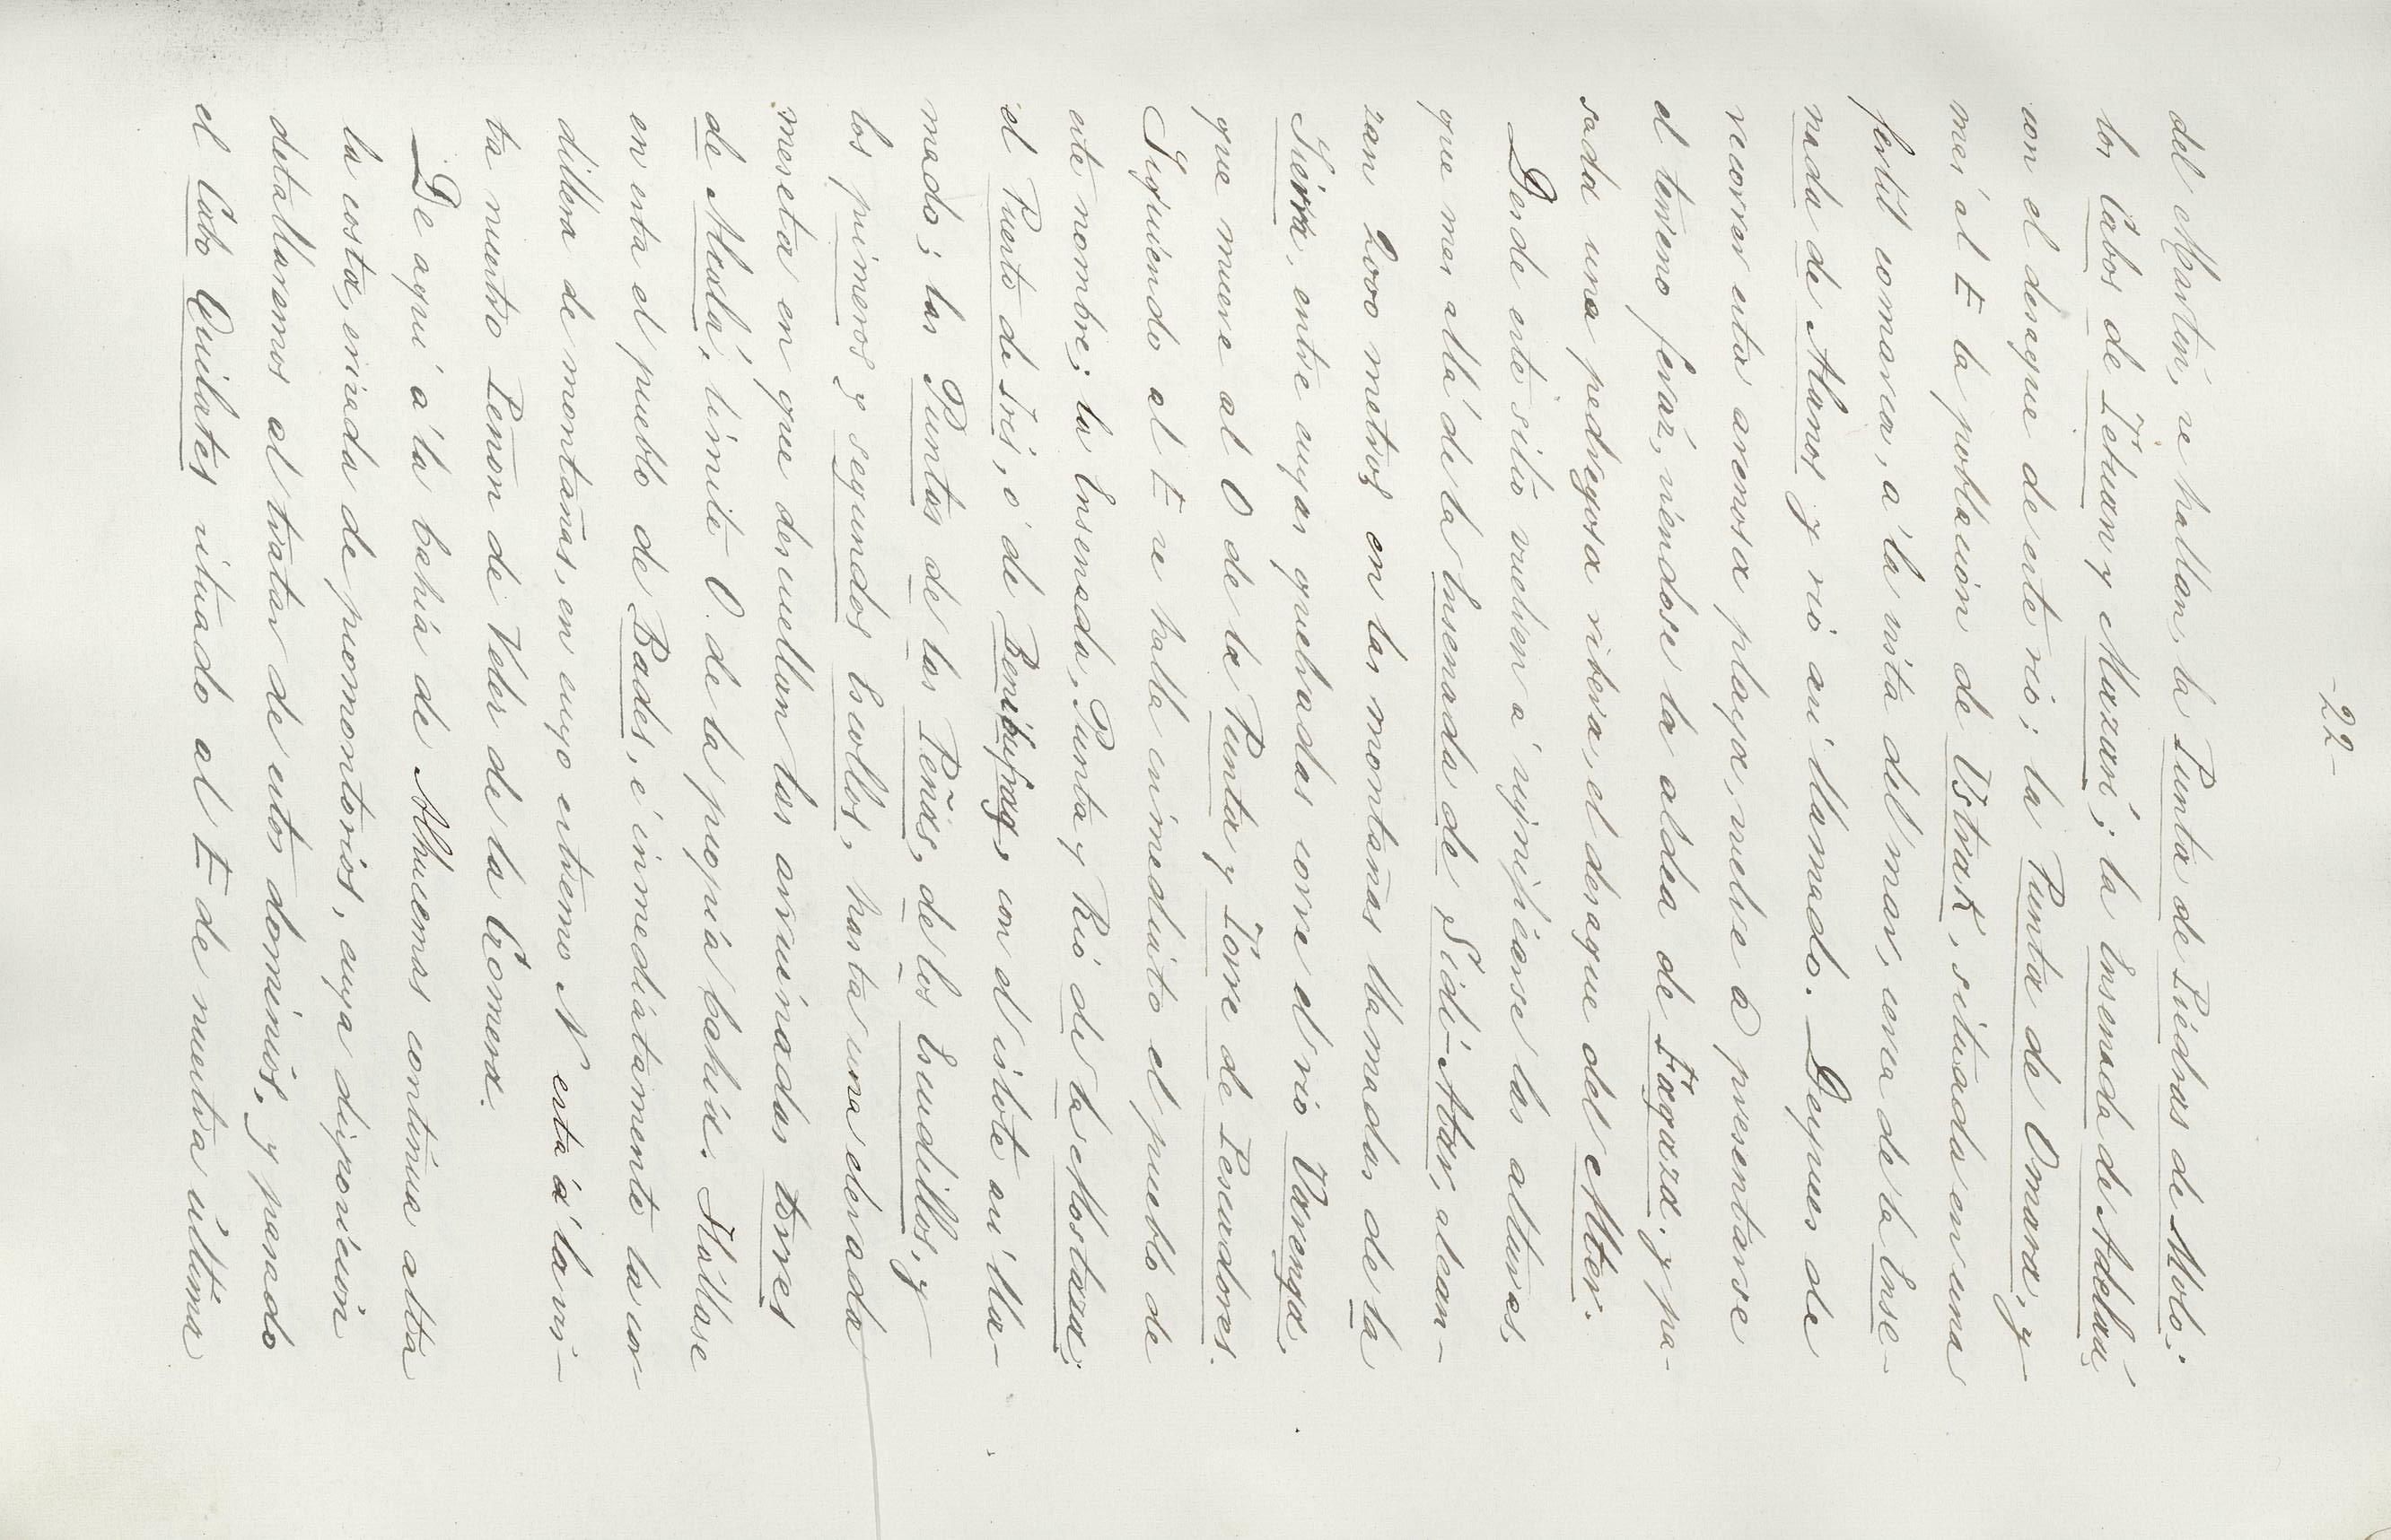 -22-
del Martin, se hallan, la Punta de Piedras de Molo;
los Cabos de Tetuan y Mazari; la Ensenada de Adelau
con el desague de este rio; la Punta de Omara, y
mas al E la poblacion de Ustrak, situada en una
fertil comarca, á la vista del mar, cerca de la Ense-
nada de Alamos y rio asi llamado. Despues de
recorrer esta arenosa playa, vuelve á presentarse
el terreno feraz, viendose la aldea de Fagaza. y pa-
sada una pedregosa ribera, el desague del Mter.
Desde este sitio vuelven á significarse las alturas,
que mas allá de la Ensenada de Sidi-Atar, alcan-
zan 2000 metros en las montañas llamadas de la
Sierra, entre cuyas quebradas corre el rio Varenga,
que muere al O de la Punta y Torre de Pescadores.
Siguiendo al E se halla inmediato el pueblo de
este nombre; la Ensenada, Punta y Rio de la Mostaza;
el Puerto de Iris, ó de Benibufrag, con el islote asi lla-
mado; las Puntas de las Peñas, de los Escudillos, y
los primeros y segundos Escollos, hasta una elevada
meseta en que descuellan las arruinadas torres
de Alcalá, limite O. de la propia bahia. Hállase
en esta el pueblo de Bades, é inmediatamente la cor-
dillera de montañas, en cuyo extremo N está á la vis-
ta nuestro Peñon de Velez de la Gomera.
De aqui á la bahia de Alhucemas continua alta
la costa, erizada de promontorios, cuya disposicion
detallaremos al tratar de estos dominios, y pasado
el Cabo Quilates situado al E de nuestra última